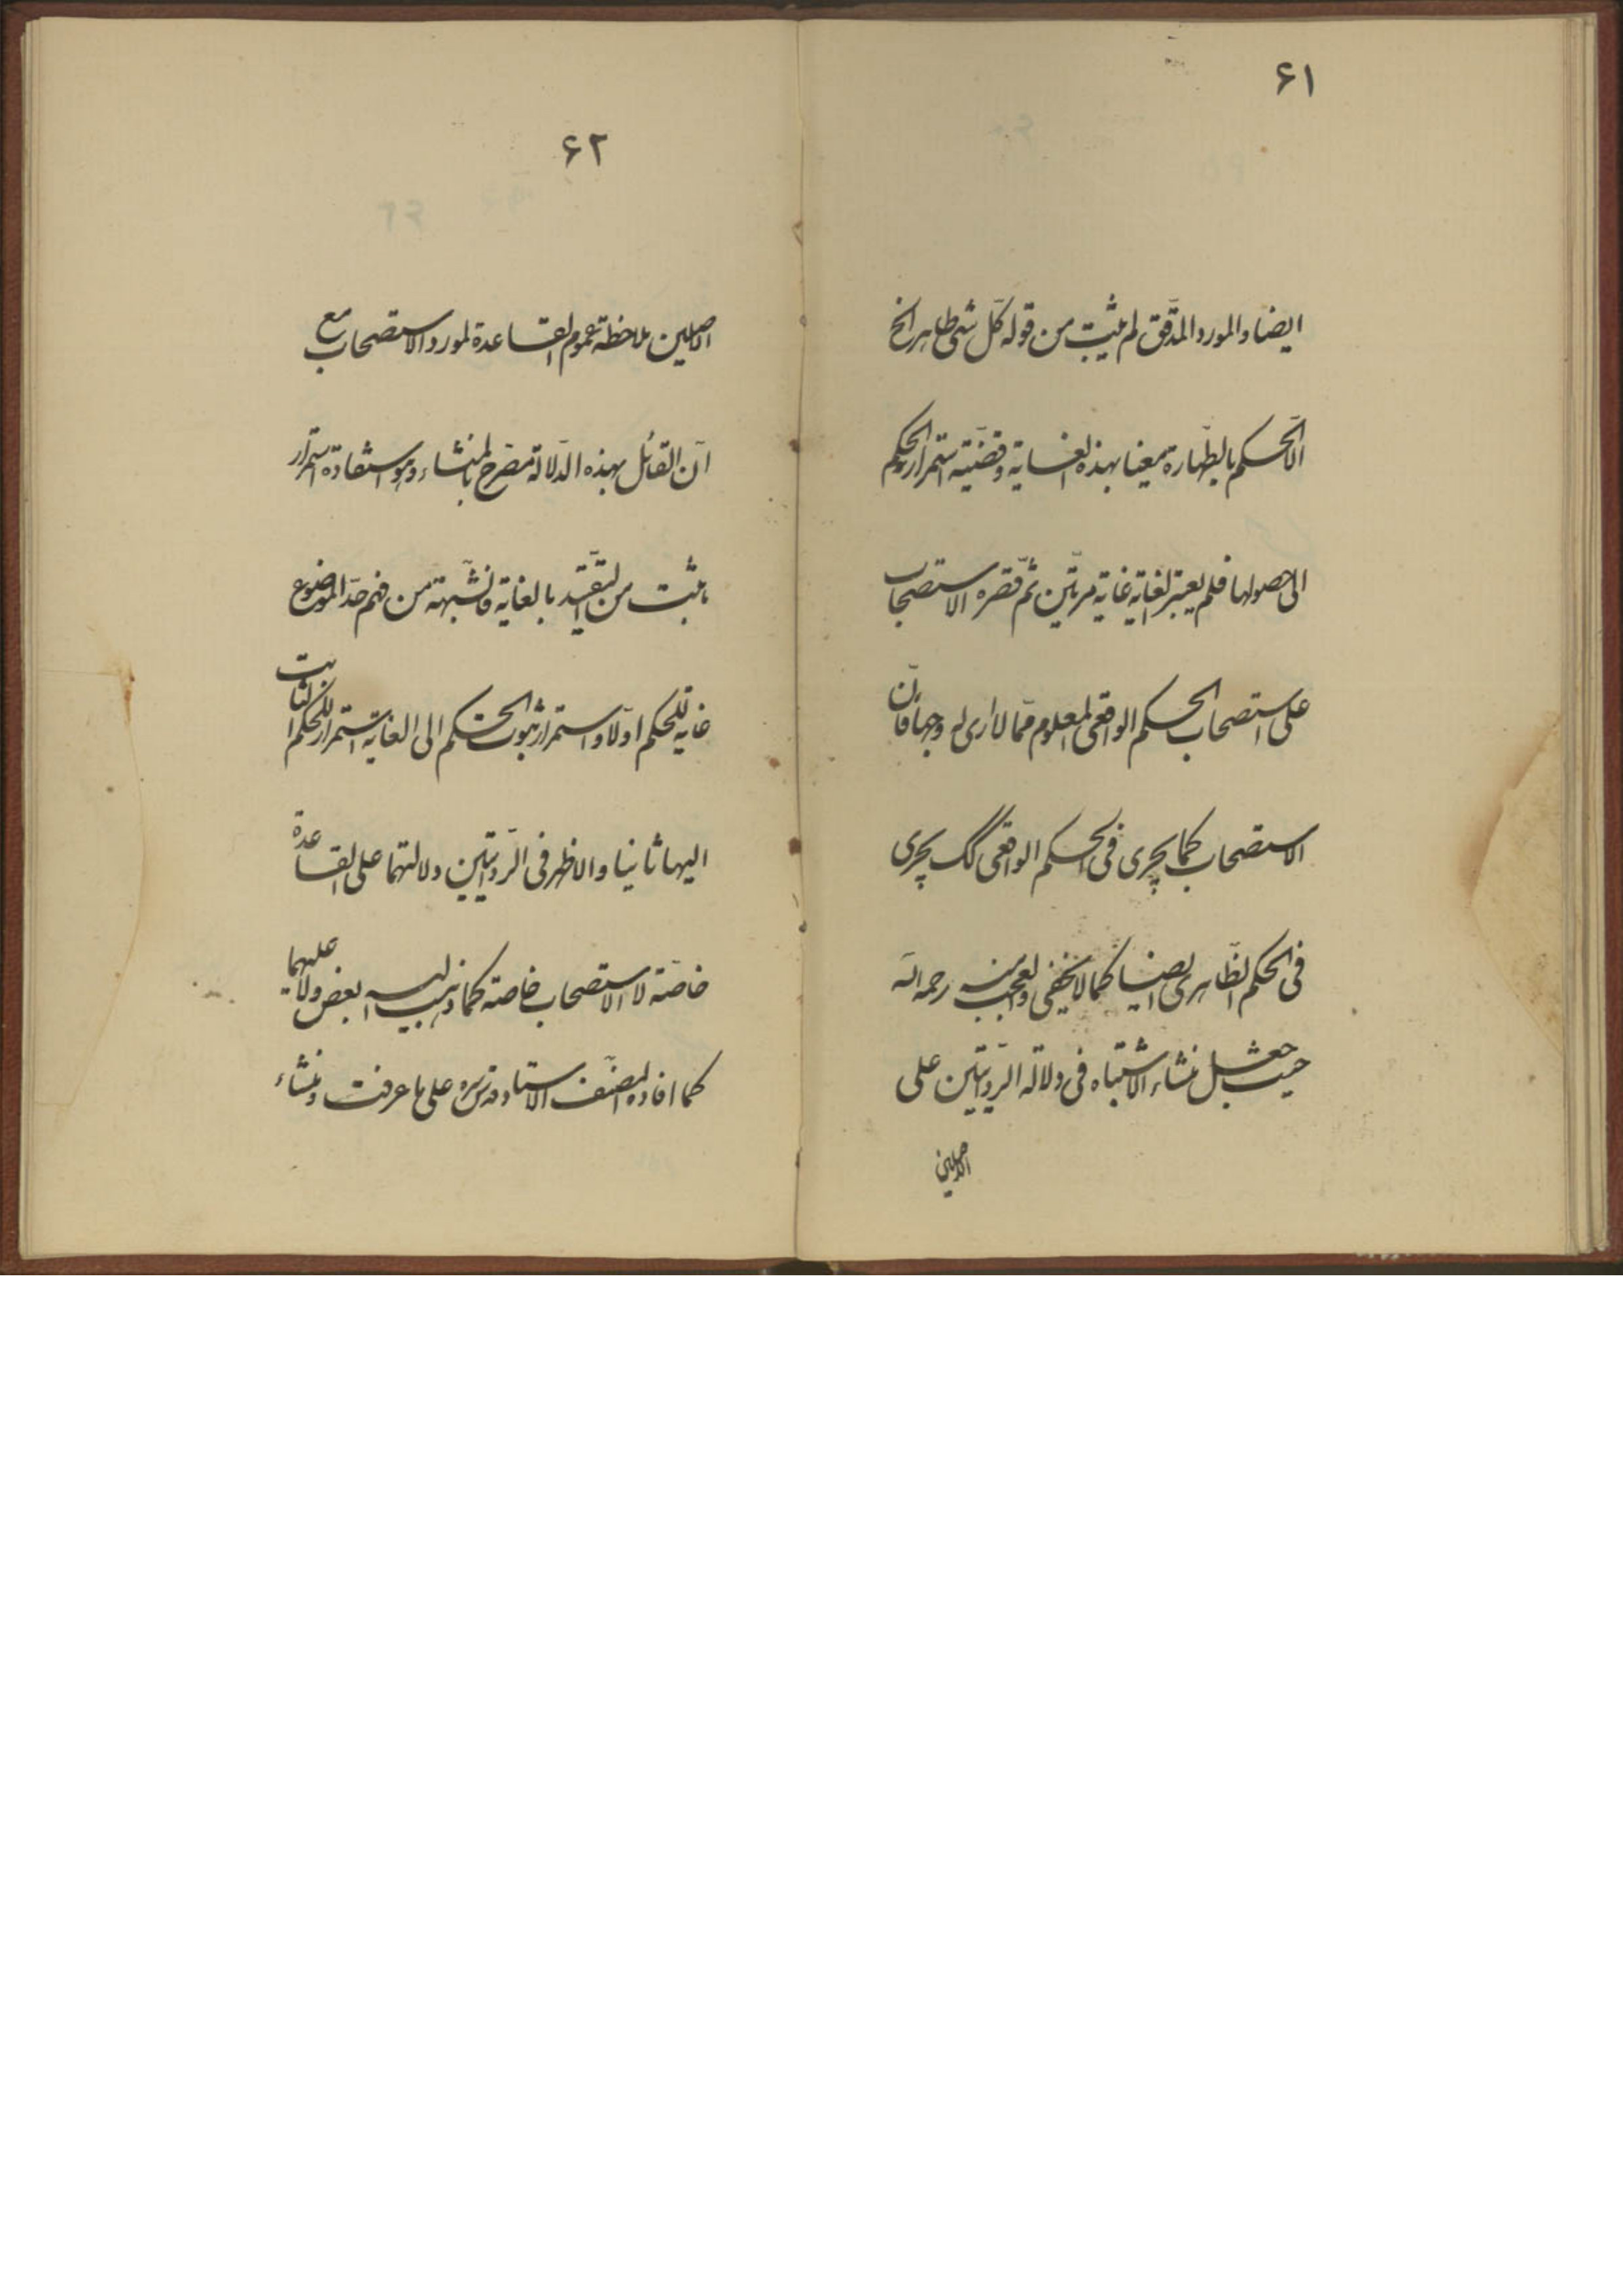 ۶۱
ايضا والمورد المدقّق لم يثبت من قوله كلّ شئ طاهر الخ
الّا الحكم بالطّهارة مغيا بهذه الغاية وقضيّته استمرار الحكم
الى حصولها فلم يعتبر الغاية غاية مرتين ثمّ قصره الاستصحاب
على استصحاب الحكم الواقعى المعلوم ممّا لا ارى له وجها فانّ
الاستصحاب كما يجرى فى الحكم الواقعى كك يجرى
فى الحكم الظّاهرى ايضا كما لا يخفى والعجب منه رحمه اللّه
حيث جعل منشاء الاشتباه فى دلالة الرّوايتين على
الاصلين
۶۲
الاصلين ملاحظة عموم القاعدة لمورد الاستصحاب مع
انّ القائل بهذه الدّلالة مصرّح بالمنشاء وهو استفادة استمرار
ما ثبت من التّقييد بالغاية فالشّبهة من فهم حدّ الموضوع
غاية للحكم اوّلا واستمرار ثبوت الحكم الى الغاية استمرارا للحكم الثابت
اليها ثانيا والاظهر فى الرّوايتين دلالتهما على القاعدة
خاصّة لا الاستصحاب خاصة كما ذهب اليه البعض ولا عليهما
كما افاده المصنّف الاستاد قدّس سرّه على ما عرفت ومنشاء